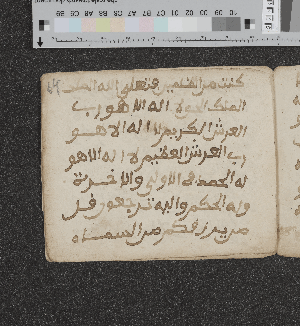 كنت من الظلمين فتعلى الله الملك
الملك الحق لا اله الا هو رب
العرش الكريم لا اله الا هو
رب العرش العظيم لا اله الا هو
له الحمد في الاولى والاخرة
وله الحكم واليه ترجعون قل
من يرزقكم من السماء